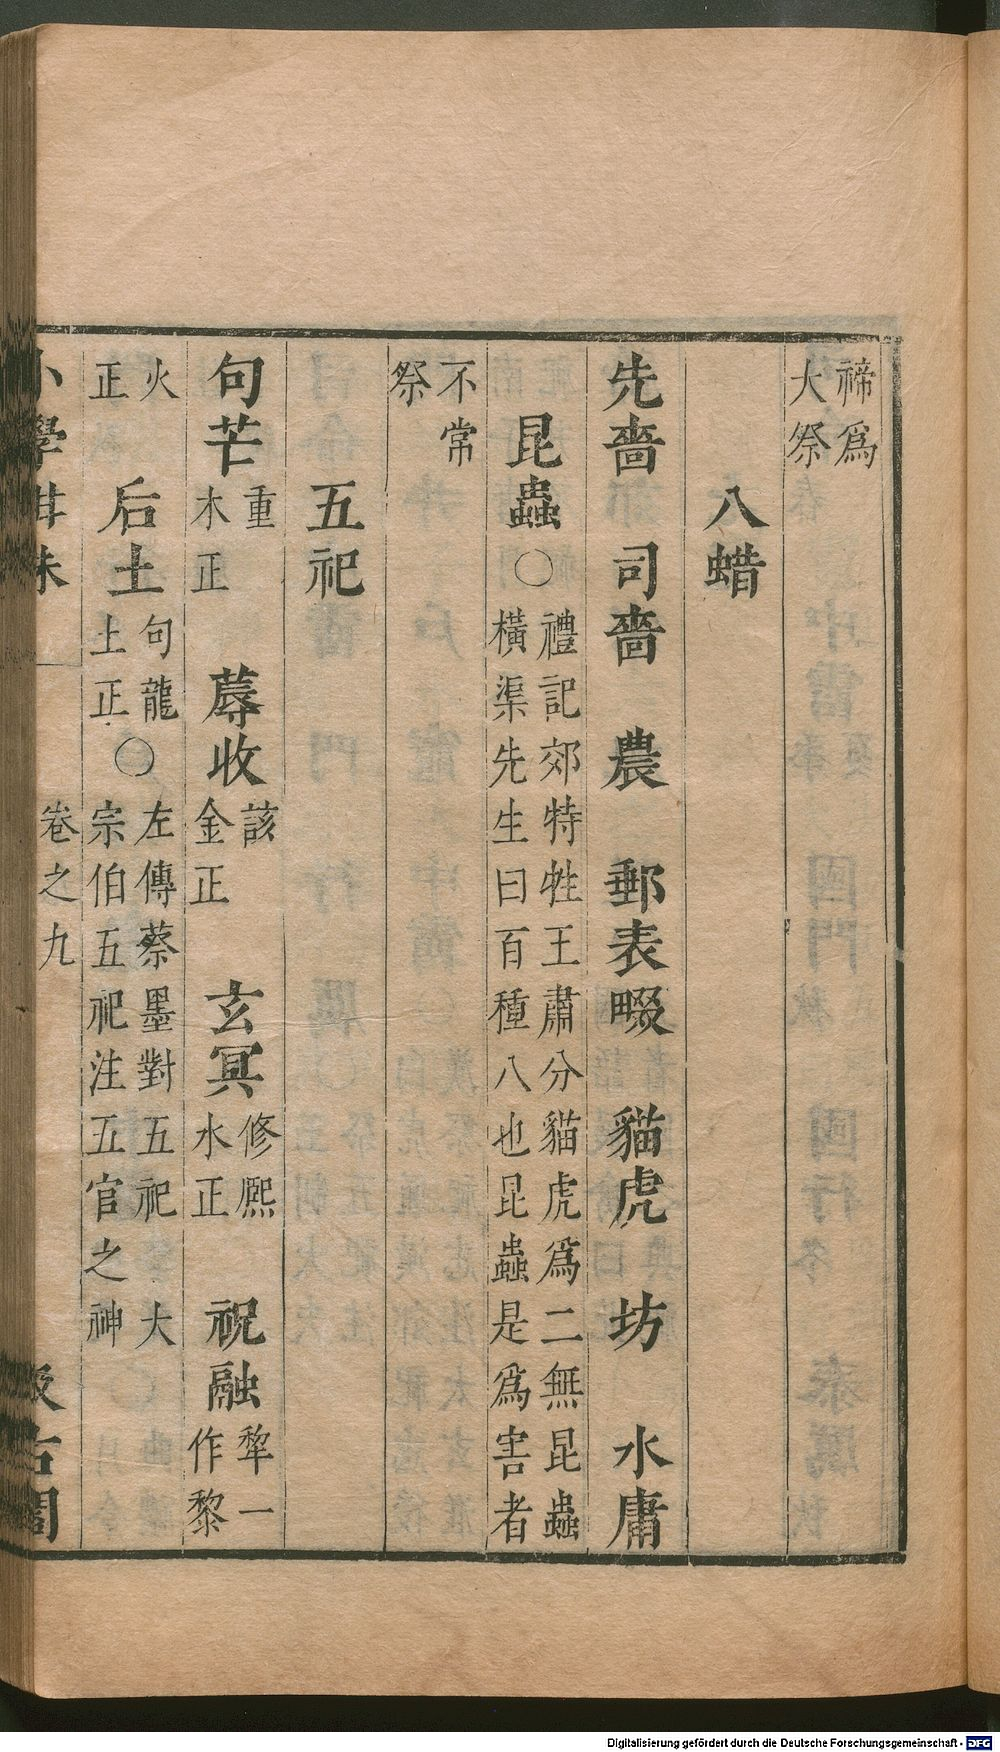 禘爲
大祭
八蜡
先嗇　司嗇　農　郵表畷　貓虎　坊　水庸
昆蟲○禮記郊特牲王肅分貓虎爲二無昆蟲
橫渠先生曰百種八也昆蟲是爲害者
不常
祭
五祀
句芒重木正　蓐收該金正　玄冥修熙水正　祝融犂一作黎
火正　后土句龍土正○左傳蔡墨對五祀　大
宗伯五祀注五官之神
小學紺珠　卷之九　汲古閣
Digitalisierung gefördert durch die Deutsche Forschungsgemeinschaft - DFG